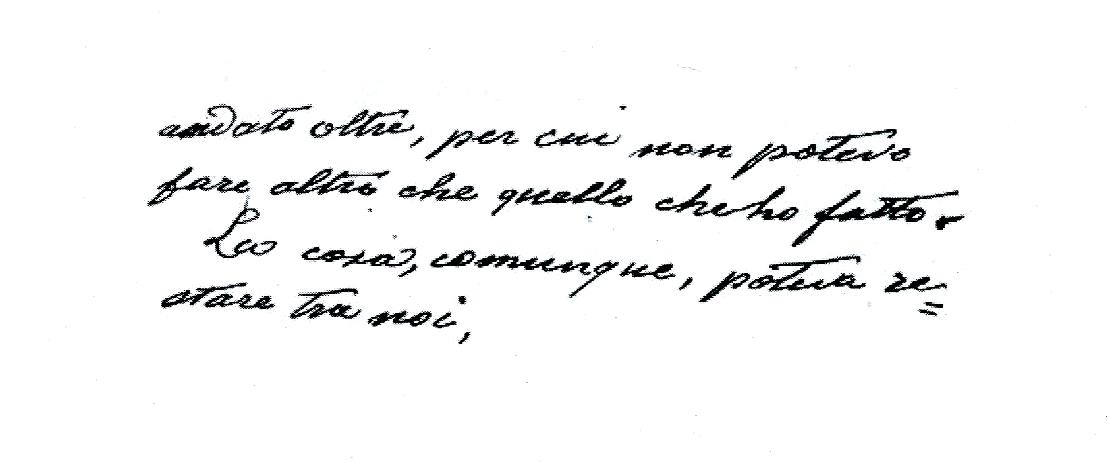 andato oltre, per cui non potevo
fare altro che quello che ho fatto.
La cosa, comunque, poteva re=
stare tra noi,